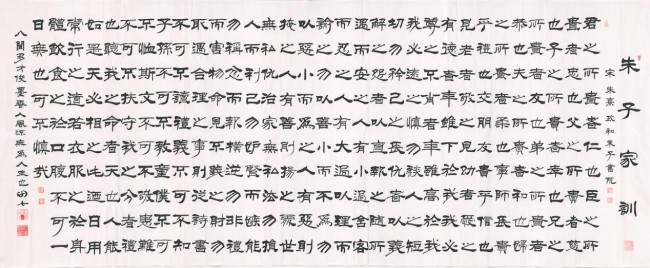 朱子家訓
宋朱熹政和朱子書院
君之所貴者仁也臣之所
貴者忠也父之所貴者慈
也子之所貴者孝也兄之
所貴者友也弟之所貴者
恭也夫之所貴者和也婦
之所貴者柔也事師長貴
乎禮也交朋友貴乎信也
見老者敬之見幼者愛之
有德者年雖下於我我必
尊之不肖者年雖高於我
我必遠之慎勿談人之短
切勿矜己之長仇者以義
解之怨者以直報之隨所
遇而安之人有小過含容
而忍之人有大過以理而
諭之勿以善小而不為勿
以惡小而為之人有惡則
掩之人有善則揚之處世
無私仇治家無私法勿損
人而利己勿妒賢而嫉能
勿稱忿而報橫逆勿非禮
而害物命見不義之財勿
取遇合理之事則從詩書
不可不讀禮義不可不知
子孫不可不教童僕不可
不恤斯文不可不敬患難
不可不扶守我之分者禮
也聽我之命者天也人能
如是天必相之此乃日用
常行之道若衣服之於身
體飲食之於口腹不可一
日無也可不慎哉
八閩多才俊